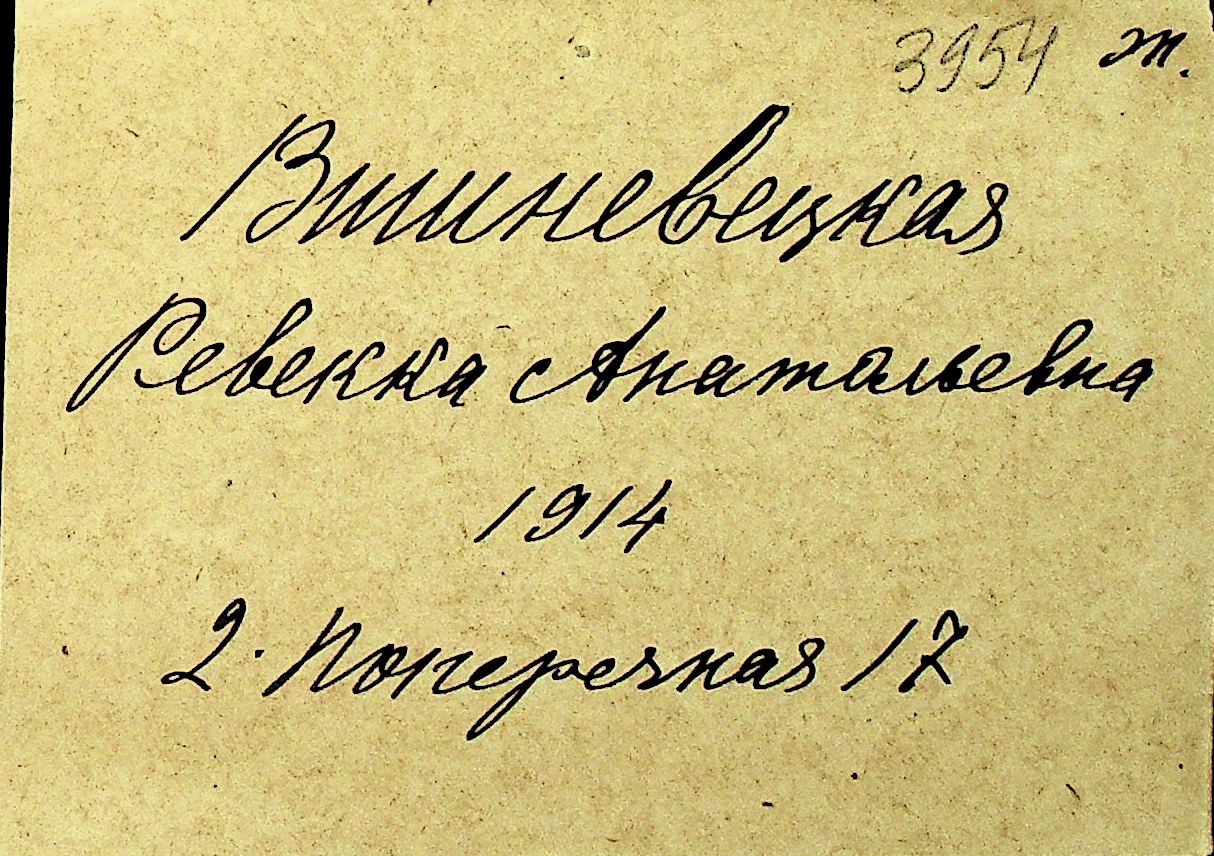 3954 т.
Вишневецкая
Ревекка Анатольевна
1914
2. Поперечная 17